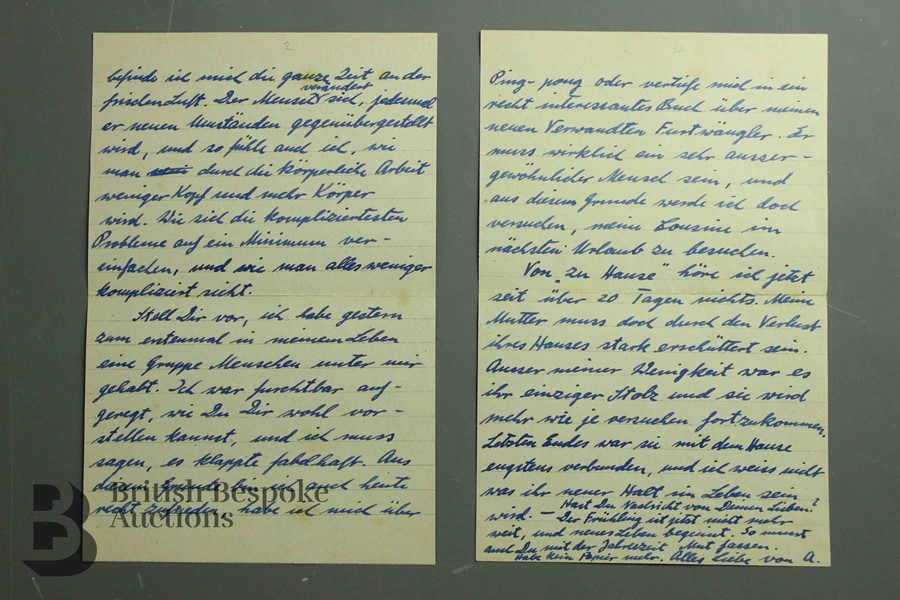 2
befinde ich mich die ganze Zeit an der
verändert
frischen Luft. Der Mensch sich, jedesmal
er neuen Umständen gegenübergestellt
wird, und so fühle auch ich, wie
man durch die körperliche Arbeit
weniger Kopf und mehr Körper
wird. Wie sich die kompliziertesten
Probleme auf ein Minimum ver-
einfachen, und wie man alles weniger
kompliziert sieht.
Stell Dir vor, ich habe gestern
zum erstenmal in meinem Leben
eine Gruppe Menschen unter mir
gehabt. Ich war furchtbar auf-
geregt, wie Du Dir wohl vor-
stellen kannst, und ich muss
sagen, es klappte fabelhaft. Aus
diesem Grunde bin ich auch heute
recht zufrieden, habe ich mich über
Ping-pong oder vertiefe mich in ein
recht interessantes Buch über meinen
neuen Verwandten Furtwängler. Er
muss wirklich ein sehr ausser-
gewöhnlicher Mensch sein, und
aus diesem Grunde werde ich doch
versuchen, meine Cousine im
nächsten Urlaub zu besuchen.
Von „zu Hause" höre ich jetzt
seit über 20 Tagen nichts. Meine
Mutter muss doch durch den Verlust
ihres Hauses stark erschüttert sein.
Ausser meiner Wenigkeit war es
ihr einziger Stolz und sie wird
mehr wie je versuchen fortzukommen.
Letzten Endes war sie mit dem Hause
engstens verbunden, und ich weiss nicht
was ihr neuer Halt im Leben sein
wird. – Hast Du Nachricht von Deinen Lieben?
Der Frühling ist jetzt nicht mehr
weit, und neues Leben beginnt. So musst
auch Du mit der Jahreszeit Mut fassen.
Habe kein Papier mehr. Alles Liebe von A.
British Bespoke
Auctions